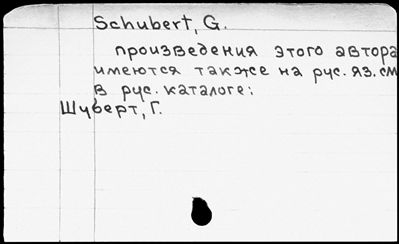 Schubert, G.
произведения этого автора
имеются также на рус. яз. см
в рус. каталоге:
Шуберт, Г.